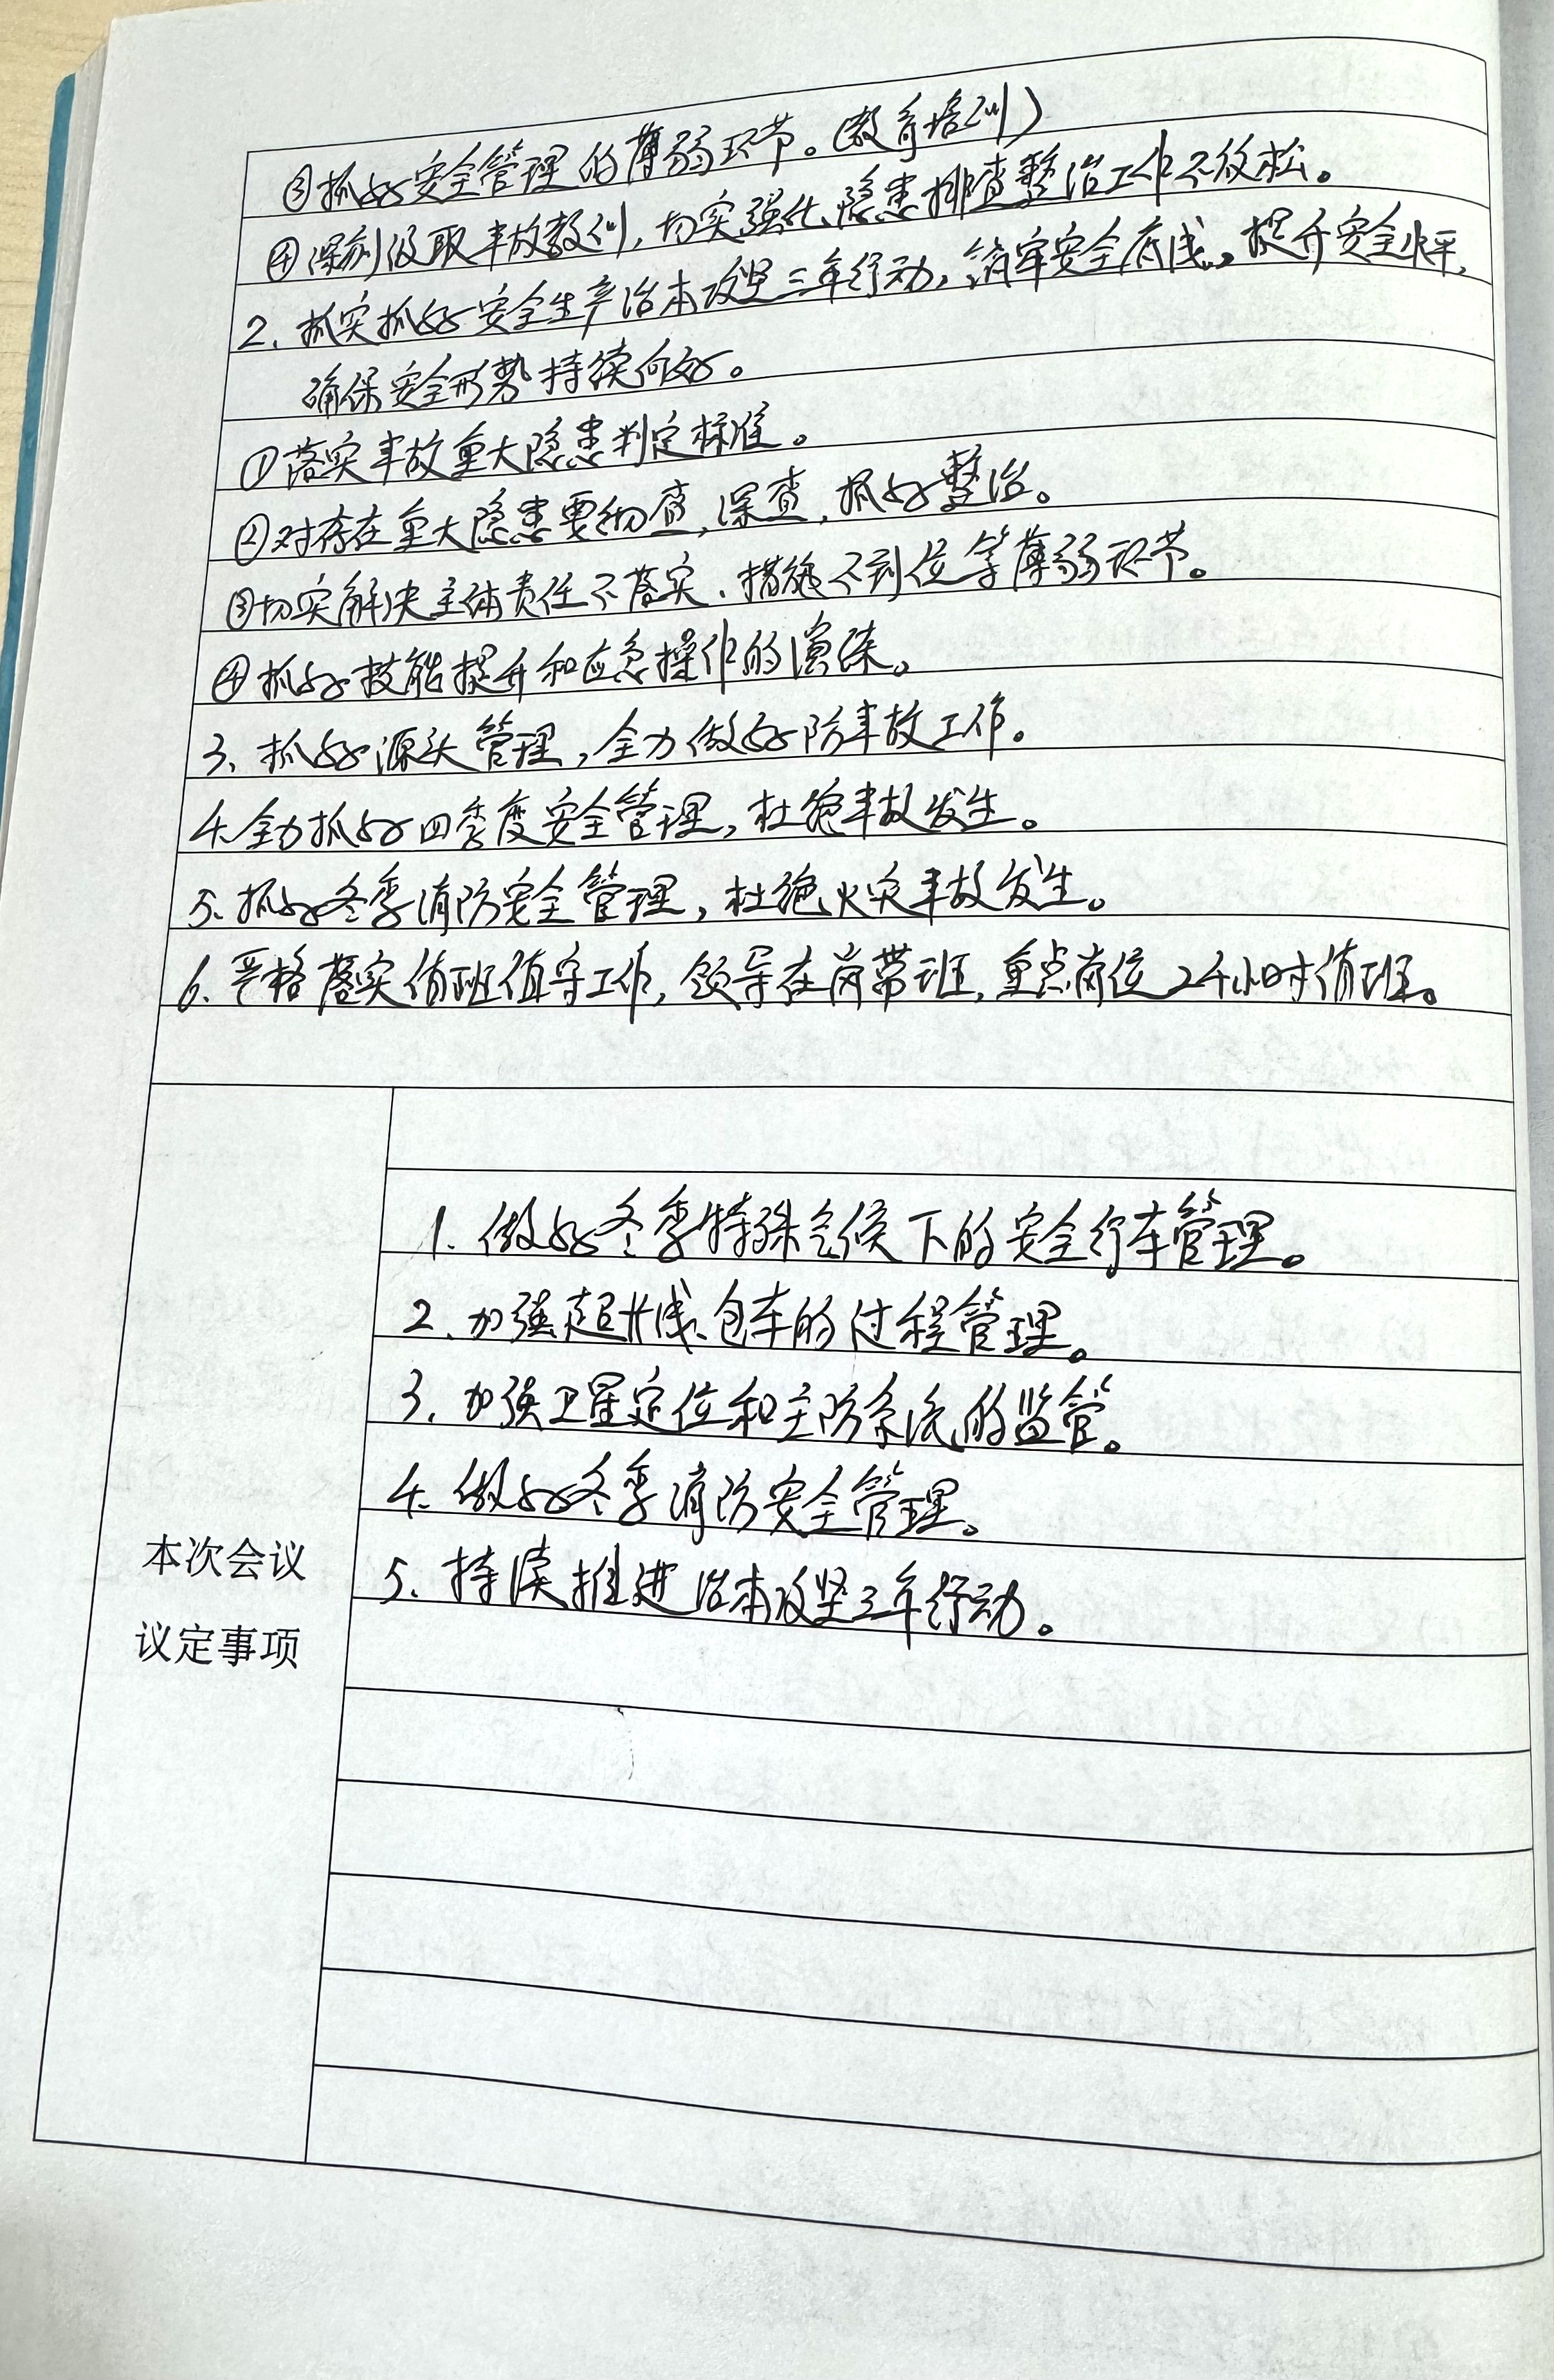 ③抓好安全管理的薄弱环节。(教育培训)
④深刻汲取事故教训,切实强化隐患排查整治工作不放松。
2、抓实抓好安全生产治本攻坚三年行动,筑牢安全底线。提升安全水平,
确保安全形势持续向好。
①落实事故重大隐患判定标准。
②对存在重大隐患要细查,深查,抓好整治。
③切实解决主体责任不落实、措施不到位等薄弱环节。
④抓好技能提升和应急操作的演练。
3、抓好源头管理,全力做好防事故工作。
4、全力抓好四季度安全管理,杜绝事故发生。
5、抓好冬季消防安全管理,杜绝火灾事故发生。
6、严格落实值班值守工作,领导在岗带班,重点岗位24小时值班。
1、做好冬季特殊气候下的安全行车管理。
2、加强超长线、包车的过程管理。
3、加强卫星定位和主防系统的监管。
4、做好冬季消防安全管理。
5、持续推进治本攻坚三年行动。
本次会议
议定事项